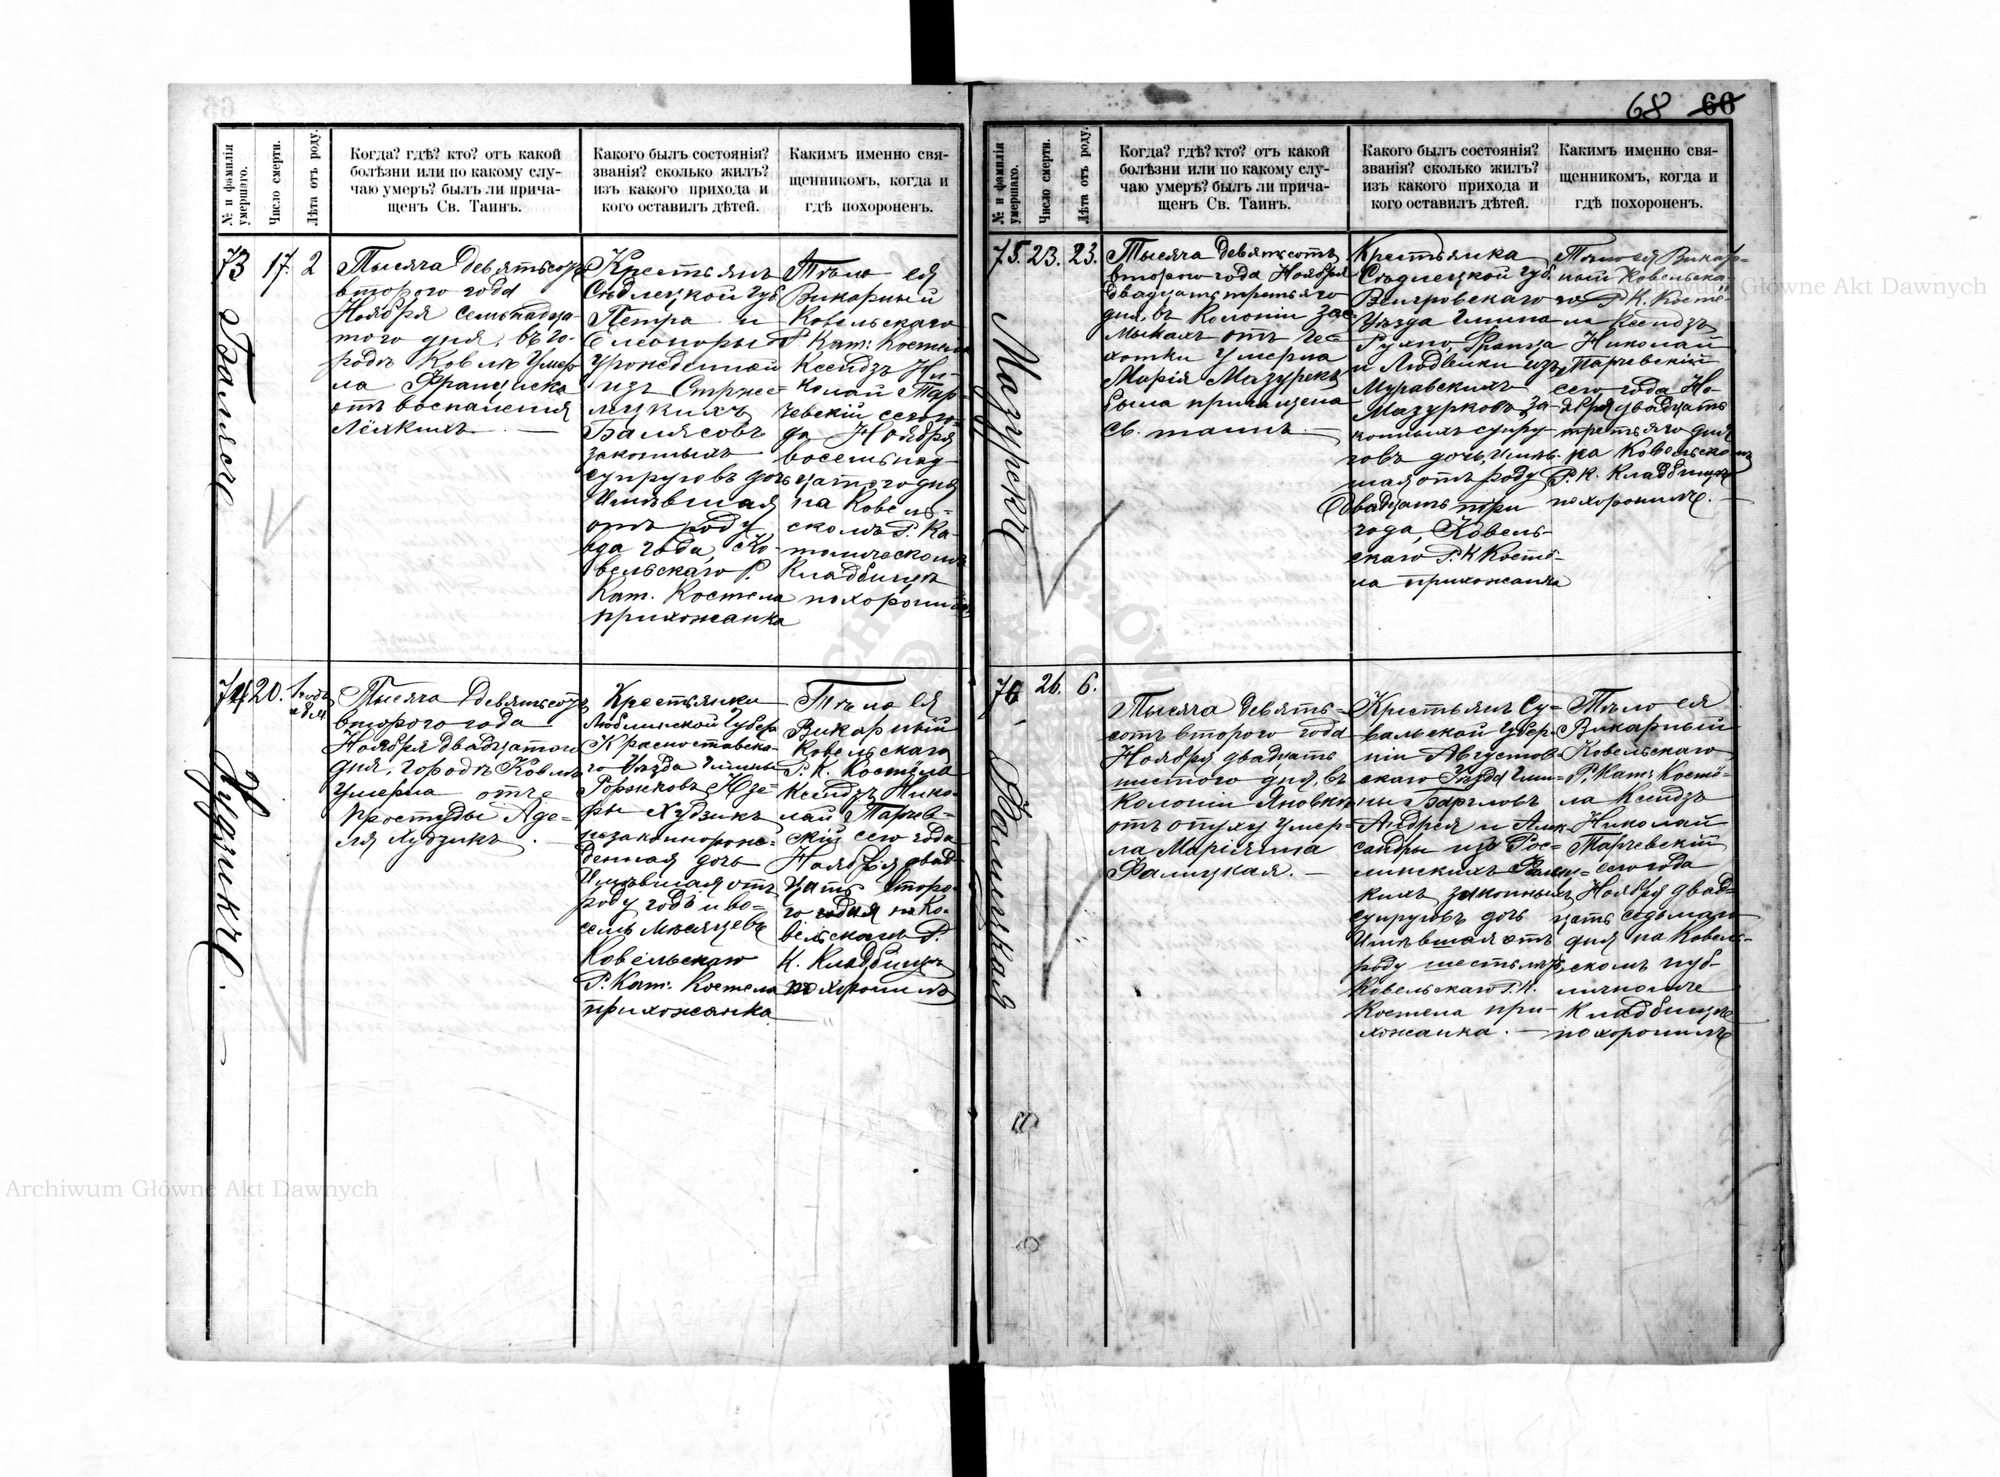 68 66
№ и фамилія умершаго.
Число смерти.
Лѣта отъ роду.
Когда? гдѣ? кто? отъ какой
болѣзни или по какому слу-
чаю умеръ? былъ ли прича-
щенъ Св. Таинъ.
Какого былъ состоянія?
званія? сколько жилъ?
изъ какого прихода и
кого оставилъ дѣтей.
Какимъ именно свя-
щенникомъ, когда и
гдѣ похороненъ.
73 17. 2
Балясъ
Тысяча девятьсотъ
второго года
Ноября семьнадца-
того дня, въ го-
родѣ Ковлѣ умер-
ла Франциска
отъ воспаленія
лёгкихъ
Крестьянъ
Сѣдлецкой губ
Петра и
Елеоноры
урожденной
изъ Стрже-
лецкихъ
Балясовъ
законныхъ
супруговъ дочь
имѣвшая
отъ роду
два года, Ко-
вельскаго Р.
Кат. Костела
прихожанка
Тѣло ея
Викарный
Ковельскаго
Р. Кат. Костела
Ксендзъ Ни-
колай Тар-
чевскій сего го-
да Ноября
восемьнад-
цатого дня
на Ковель-
скомъ Р. Ка-
толическомъ
Кладбищѣ
похоронилъ
74 20. 1 годъ и 8 м.
Худзикъ.
Тысяча девятьсотъ
второго года
Ноября двадцатого
дня, городѣ Ковлѣ
умерла отъ
простуды Аде-
ля Худзикъ.
Крестьянки
Люблинской Губер
Красноставска-
го Уѣзда Гмины
Рожковъ Юзе-
фы Худзикъ
незаконнорож-
денная дочь
имѣвшая отъ
роду годъ и во-
семь мѣсяцевъ
Ковельскаго
Р. Кат. Костела
прихожанка
Тѣло ея
Викарный
Ковельскаго
Р. К. Костёла
Ксендзъ Нико-
лай Тарчев-
скій сего года
Ноября двад-
цать второ-
го дня на Ко-
вельскомъ Р.
К. Кладбищѣ
похоронилъ
№ и фамилія умершаго.
Число смерти.
Лѣта отъ роду.
Когда? гдѣ? кто? отъ какой
болѣзни или по какому слу-
чаю умеръ? былъ ли прича-
щенъ Св. Таинъ.
Какого былъ состоянія?
званія? сколько жилъ?
изъ какого прихода и
кого оставилъ дѣтей.
Какимъ именно свя-
щенникомъ, когда и
гдѣ похороненъ.
75. 23. 23.
Мазурекъ
Тысяча девятьсотъ
второго года Ноября
двадцать третьяго
дня, въ Колоніи
отъ ча-
хотки умерла
Марія Мазурекъ
была причащена
св. таинъ.
Крестьянка
Сѣдлецкой губ.
Венгровскаго
Уѣзда Гмина
Рухно, Франца
и Людвики изъ
Муравскихъ
Мазурковъ за-
конныхъ супру-
говъ дочь, имѣв-
шая отъ роду
двадцать три
года, Ковель-
скаго Р. К Костё-
ла прихожанка
Тѣло ея Викар-
ный Ковельска-
го Р. К. Костё-
ла Ксендзъ
Николай
Тарчевскій
сего года Но-
ября двадцать
третьяго дня
на Ковельскомъ
Р. К. Кладбищѣ
похоронилъ.
76 26. 6.
Фалицкая
Тысяча девять-
сотъ второго года
Ноября двадцать
шестого дня, въ
Колоніи Яновкѣ
отъ опуху умер-
ла Маріянна
Фалицкая.
Крестьянъ Су-
вальской Губер-
ніи Августов-
скаго Уѣзда Гми-
ны Баргловъ
Андрея и Алек-
сандры изъ Рос-
линскихъ Фалиц-
кихъ законныхъ
супруговъ дочь
имѣвшая отъ
роду шесть лѣтъ,
Ковельскаго Р. К.
Костела при-
хожанка.
Тѣло ея
Викарный
Ковельскаго
Р. Кат. Костё-
ла Ксендзъ
Николай
Тарчевскій
сего года
Ноября двад-
цать седьмаго
дня на Ковель-
скомъ пуб-
личномъ
Кладбищѣ
похоронилъ
Archiwum Główne Akt Dawnych
Archiwum Główne Akt Dawnych